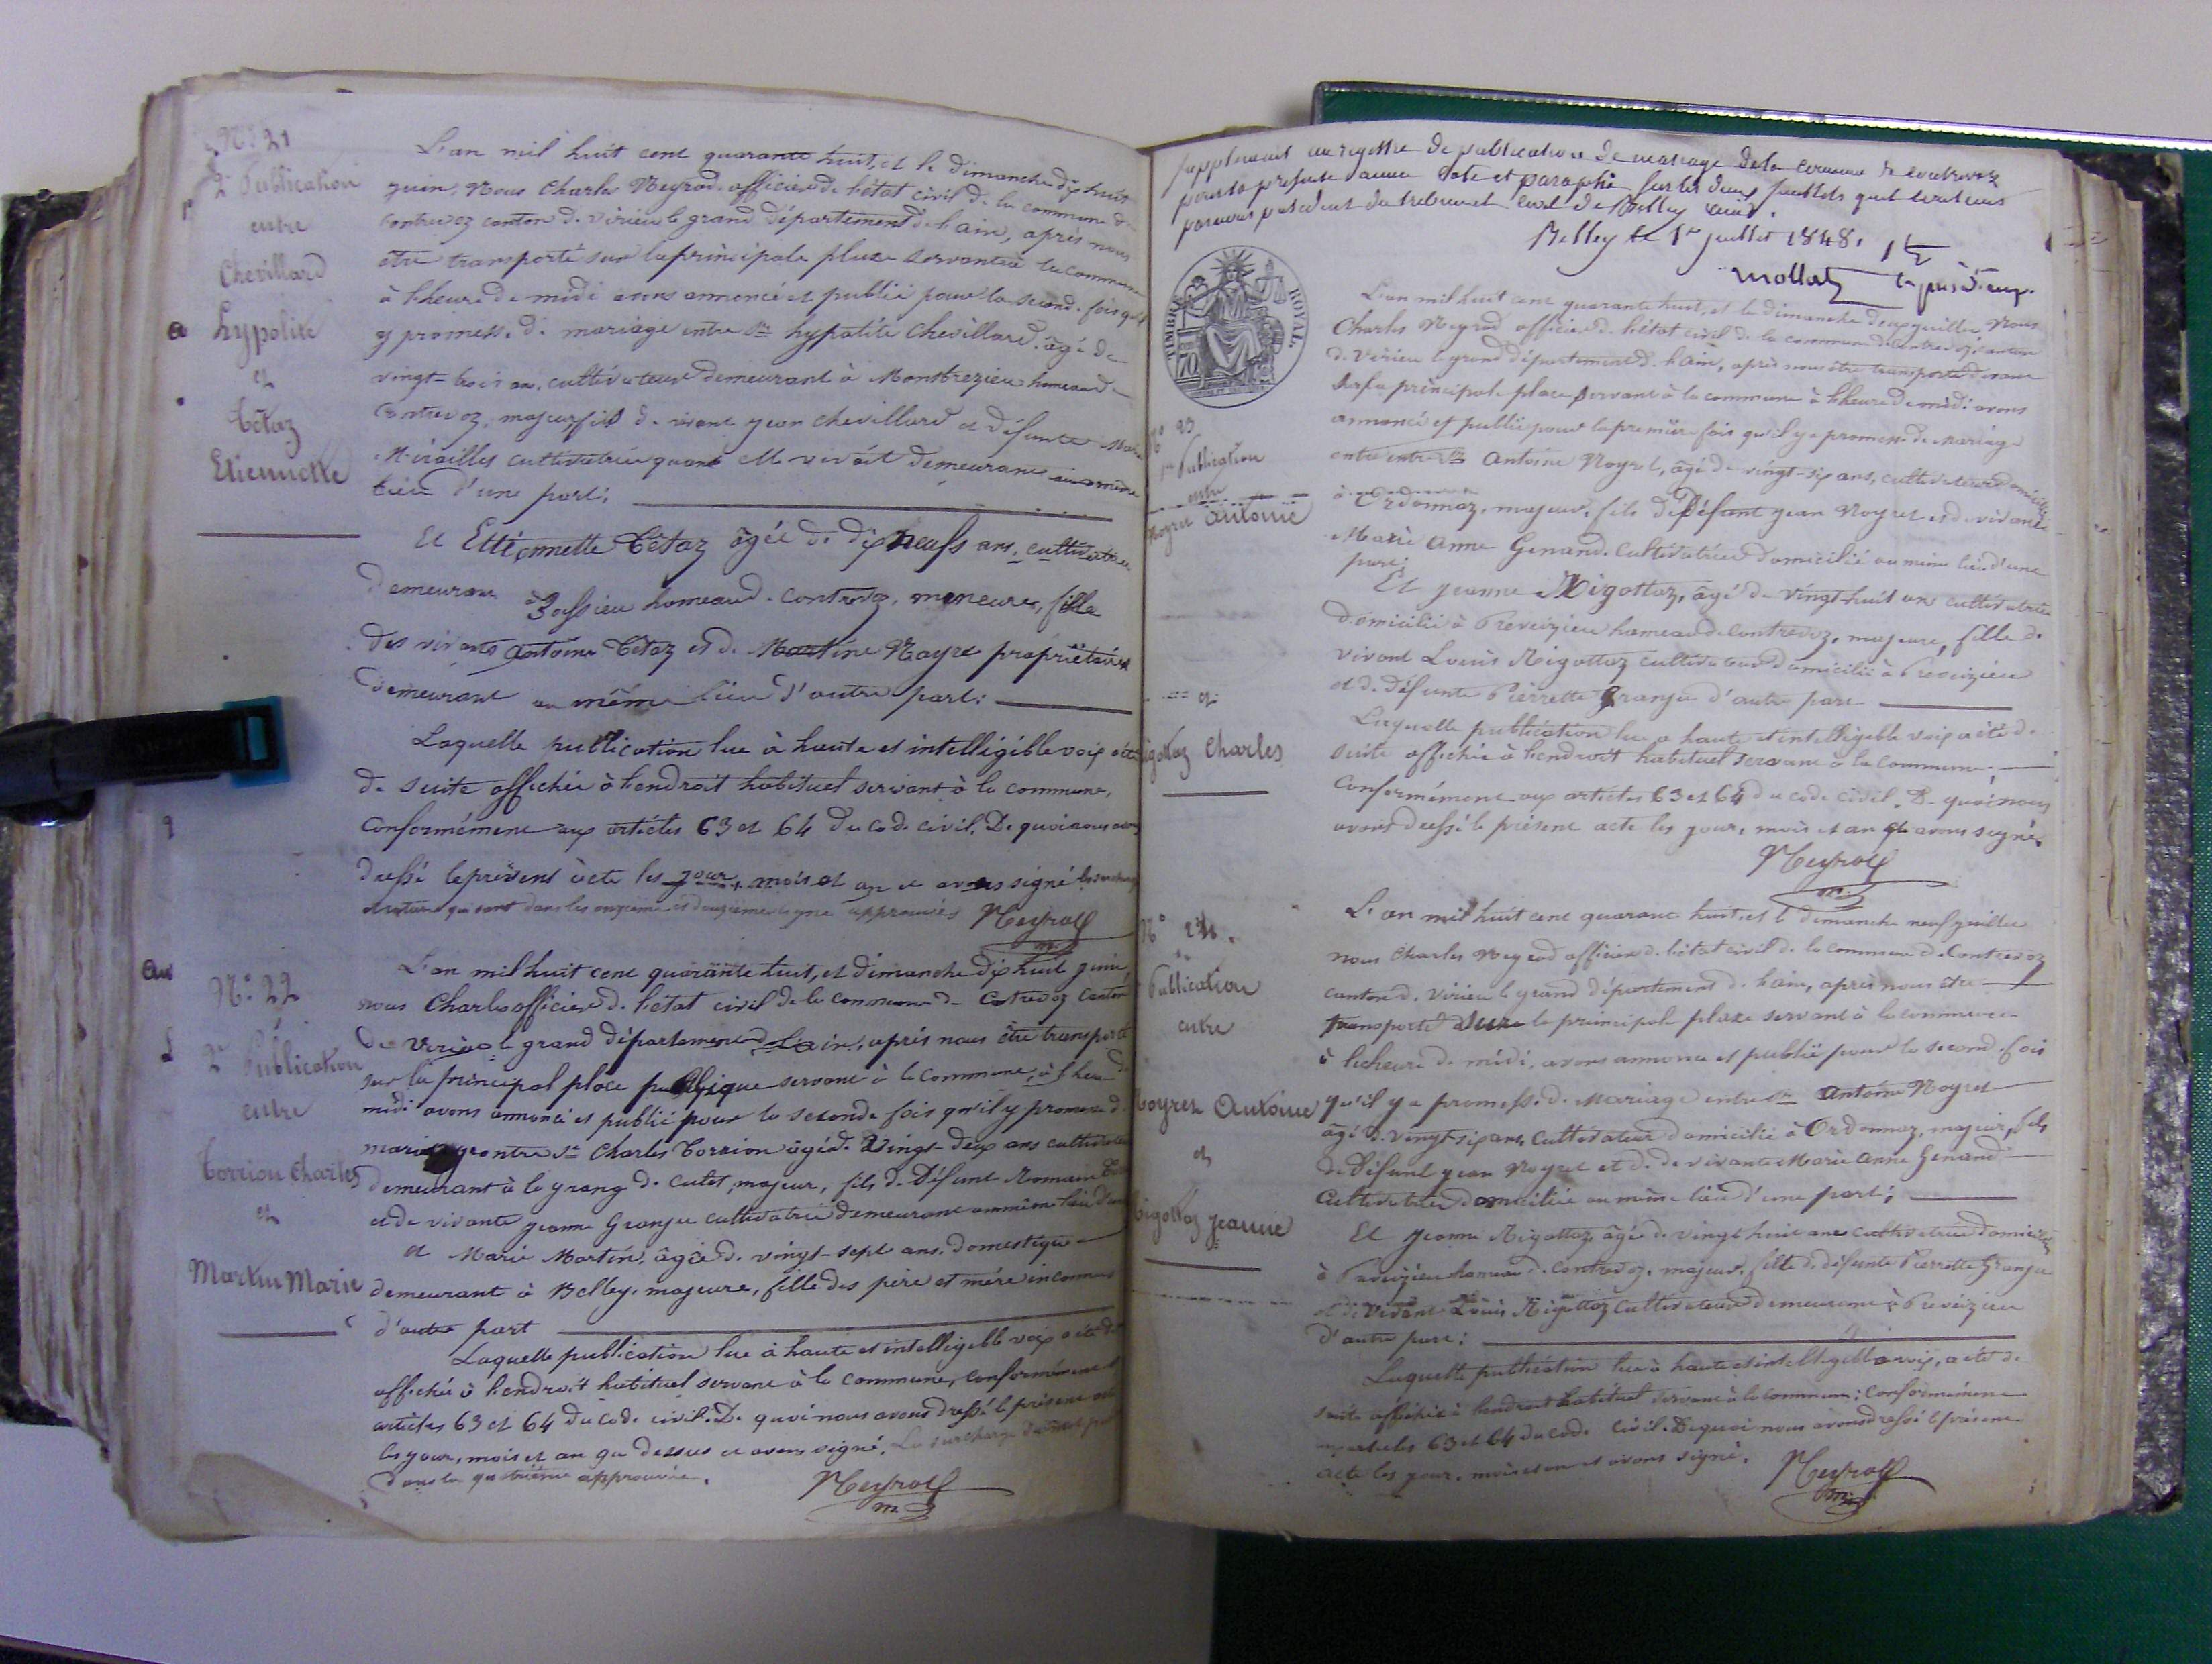 N° 21
2e Publication
entre
Chevillard
hypolite
et
Tétaz
Etiennette
L'an mil huit cent quarante huit, et le dimanche dix huit
juin, Nous Charles Neyrod officier de l'état civil de la commune de
Contrevoz canton de Virieu le grand département de l'ain, après nous
être transporté sur la principale place servante à la commune
à l'heure de midi avons annoncé et publié pour la seconde fois qu'il
y promesse de mariage entre Sr hypolite Chevillard, âgé de
vingt-trois ans, cultivateur demeurant à Montbrezieu hameau de
Contrevoz, majeur, fils de vivant jean chevillard et défunte Marie
Mirailles cultivatrice quand elle vivait demeurant au même
lieu d'une part;
Et Ettiennette Tétaz âgée de dix neufs ans, cultivatrice
demeurant à Bossieu hameau de Contrevoz, mineure, fille
des vivans antoine Tétaz et de Martine Noyre propriétaires
demeurant au même lieu d'autre part:
Laquelle publication lue à haute et intelligible voix a été
de suite affichée à l'endroit habituel servant à la commune,
Conformément aux articles 63 et 64 du code civil. De quoi nous avons
dressé le présent acte les jour, mois et an et avons signé les surcharge
et rature qui sont dans les onzième et douzième ligne approuvés Neyrod
m.
N° 22
2e Publication
entre
Torrion Charles
et
Martin Marie
L'an mil huit cent quarante huit, et dimanche dix huit juin
nous Charles officier de l'état civil de la commune de Cotrevoz Canton
De Virieu le grand département de l'ain, après nous être transporté
sur la principal place publique servant à la commune, à l'heure de
midi avons annoncé et publié pour la seconde fois qu'il y promesse de
mariage entre Sr Charles Torrion âgé de vingt-deux ans cultivateur
demeurant à la grang de culet, majeur, fils de Défunt Romain
et de vivante jeanne Granju cultivatrice demeurant au même lieu d'une
et Marie Martin, âgée de vingt-sept ans, domestique
demeurant à Belley, majeure, fille des père et mère inconnus
d'autre part
Laquelle publication lue à haute et intelligible voix a été de
affichée à l'endroit habituel servant à la commune, conformément
articles 63 et 64 du code civil. De quoi nous avons dressé le présent acte
les jour, mois et an que dessus et avons signé. La surcharge du mot
dans la quatrième approuvée.
Neyrod
m.
supplément au registre de publication de mariage de la commune de Contrevoz
pour la présente année coté et paraphé sur les deux feuillets qu'il contient
par nous président du tribunal civil de Belley
Belley le 1er juillet 1848.
Mollat
TIMBRE ROYAL.
70
N° 23
1re Publication
entre
Noyret Antoine
et
igottaz Charles
L'an mil huit cent quarante huit, et le dimanche deux juillet Nous
Charles Neyrod officier de l'état civil de la commune de Contrevoz, canton
de Virieu le grand département de l'ain, après nous être transporté devant
sur la principale place servant à la commune à l'heure de midi avons
annoncé et publié pour la première fois qu'il y a promesse de mariage
entre entre Sr Antoine Noyret, âgé de vingt-six ans, cultivateur domicilié
à Ordonnaz, majeur, fils de Défunt jean Noyret et de vivante
Marie Anne Genand Cultivatrice domicilié au même lieu d'une
part;
Et jeanne Migottaz, âgé de vingt-huit ans cultivatrice
domicilié à Preveizieu hameau de Contrevoz, majeure, fille de
vivant Louis Migottaz cultivateur domicilié à Preveizieu
et de Défunte Pierrette Granju d'autre part
Laquelle publication lue a haute et intelligible voix a été de
suite affichée à l'endroit habituel servant à la commune;
Conformément aux articles 63 et 64 du code civil. De quoi nous
avons dressé le présent acte les jour, mois et an et avons signé.
Neyrod
m.
N° 24.
2e
Publication
entre
Noyret Antoine
et
igottaz jeanne
L'an mil huit cent quarante huit, et le dimanche neuf juillet
nous Charles Neyrod officier de l'état civil de la commune de Contrevoz
canton de Virieu le grand département de l'ain, après nous être
transporté sur la principale place servant à la commune
à l'heure de midi, avons annoncé et publié pour la second fois
qu'il y a promesse de Mariage entre Sr Antoine Noyret
âgé de vingt-six ans, Cultivateur domicilié à Ordonnaz, majeur, fils
de Défunt jean Noyret et de de vivante Marie Anne Genand
Cultivatrice domiciliée au même lieu d'une part;
Et Jeanne Migottaz, âgé de vingt huit ans cultivatrice domiciliée
à Preveizieu hameau de Contrevoz, majeur, fille de défunte Pierrette Granju
et de vivant Louis Migottaz Cultivateur demeurant à Preveizieu
d'autre part:
Laquelle publication lue à haute et intelligible voix, a été de
suite affichée à l'endroit habituel servant à la commune; Conformément
aux articles 63 et 64 du code civil. De quoi nous avons dressé le présent
acte les jour, mois et an et avons signé.
Neyrod
m.